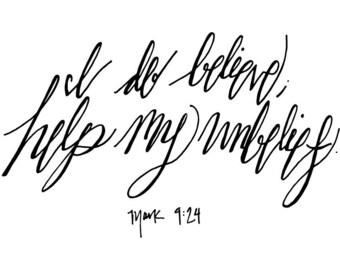 I do believe;
help my unbelief!
Mark 9:24